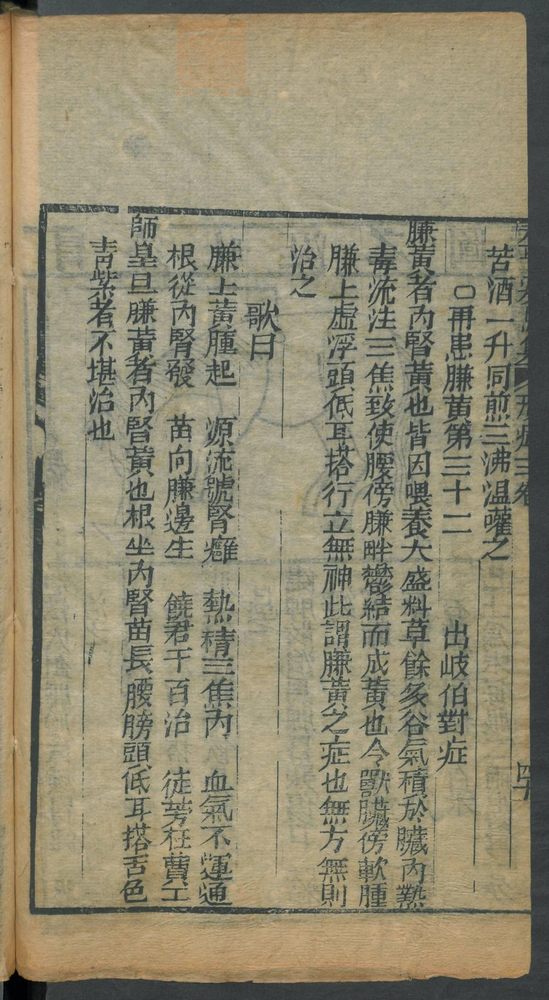 苦酒一升同煎三沸温灌之
○再患膁黃第三十二 出岐伯對症
膁黃者內腎黃也皆因喂養大盛料草餘多谷氣積於臟內熱
毒流注三焦致使腰傍膁畔鬱結而成黃也令獸膁傍軟腫
膁上虛浮頭低耳搭行立無神此謂膁黃之症也無方無則
治之
歌曰
膁上黃腫起 源流號腎癰 熱積三焦內 血氣不運通
根從內腎發 苗向膁邊生 饒君千百治 徒勞枉費工
師皇曰膁黃者內腎黃也根坐內腎苗長腰膀頭低耳搭舌色
青紫者不堪治也